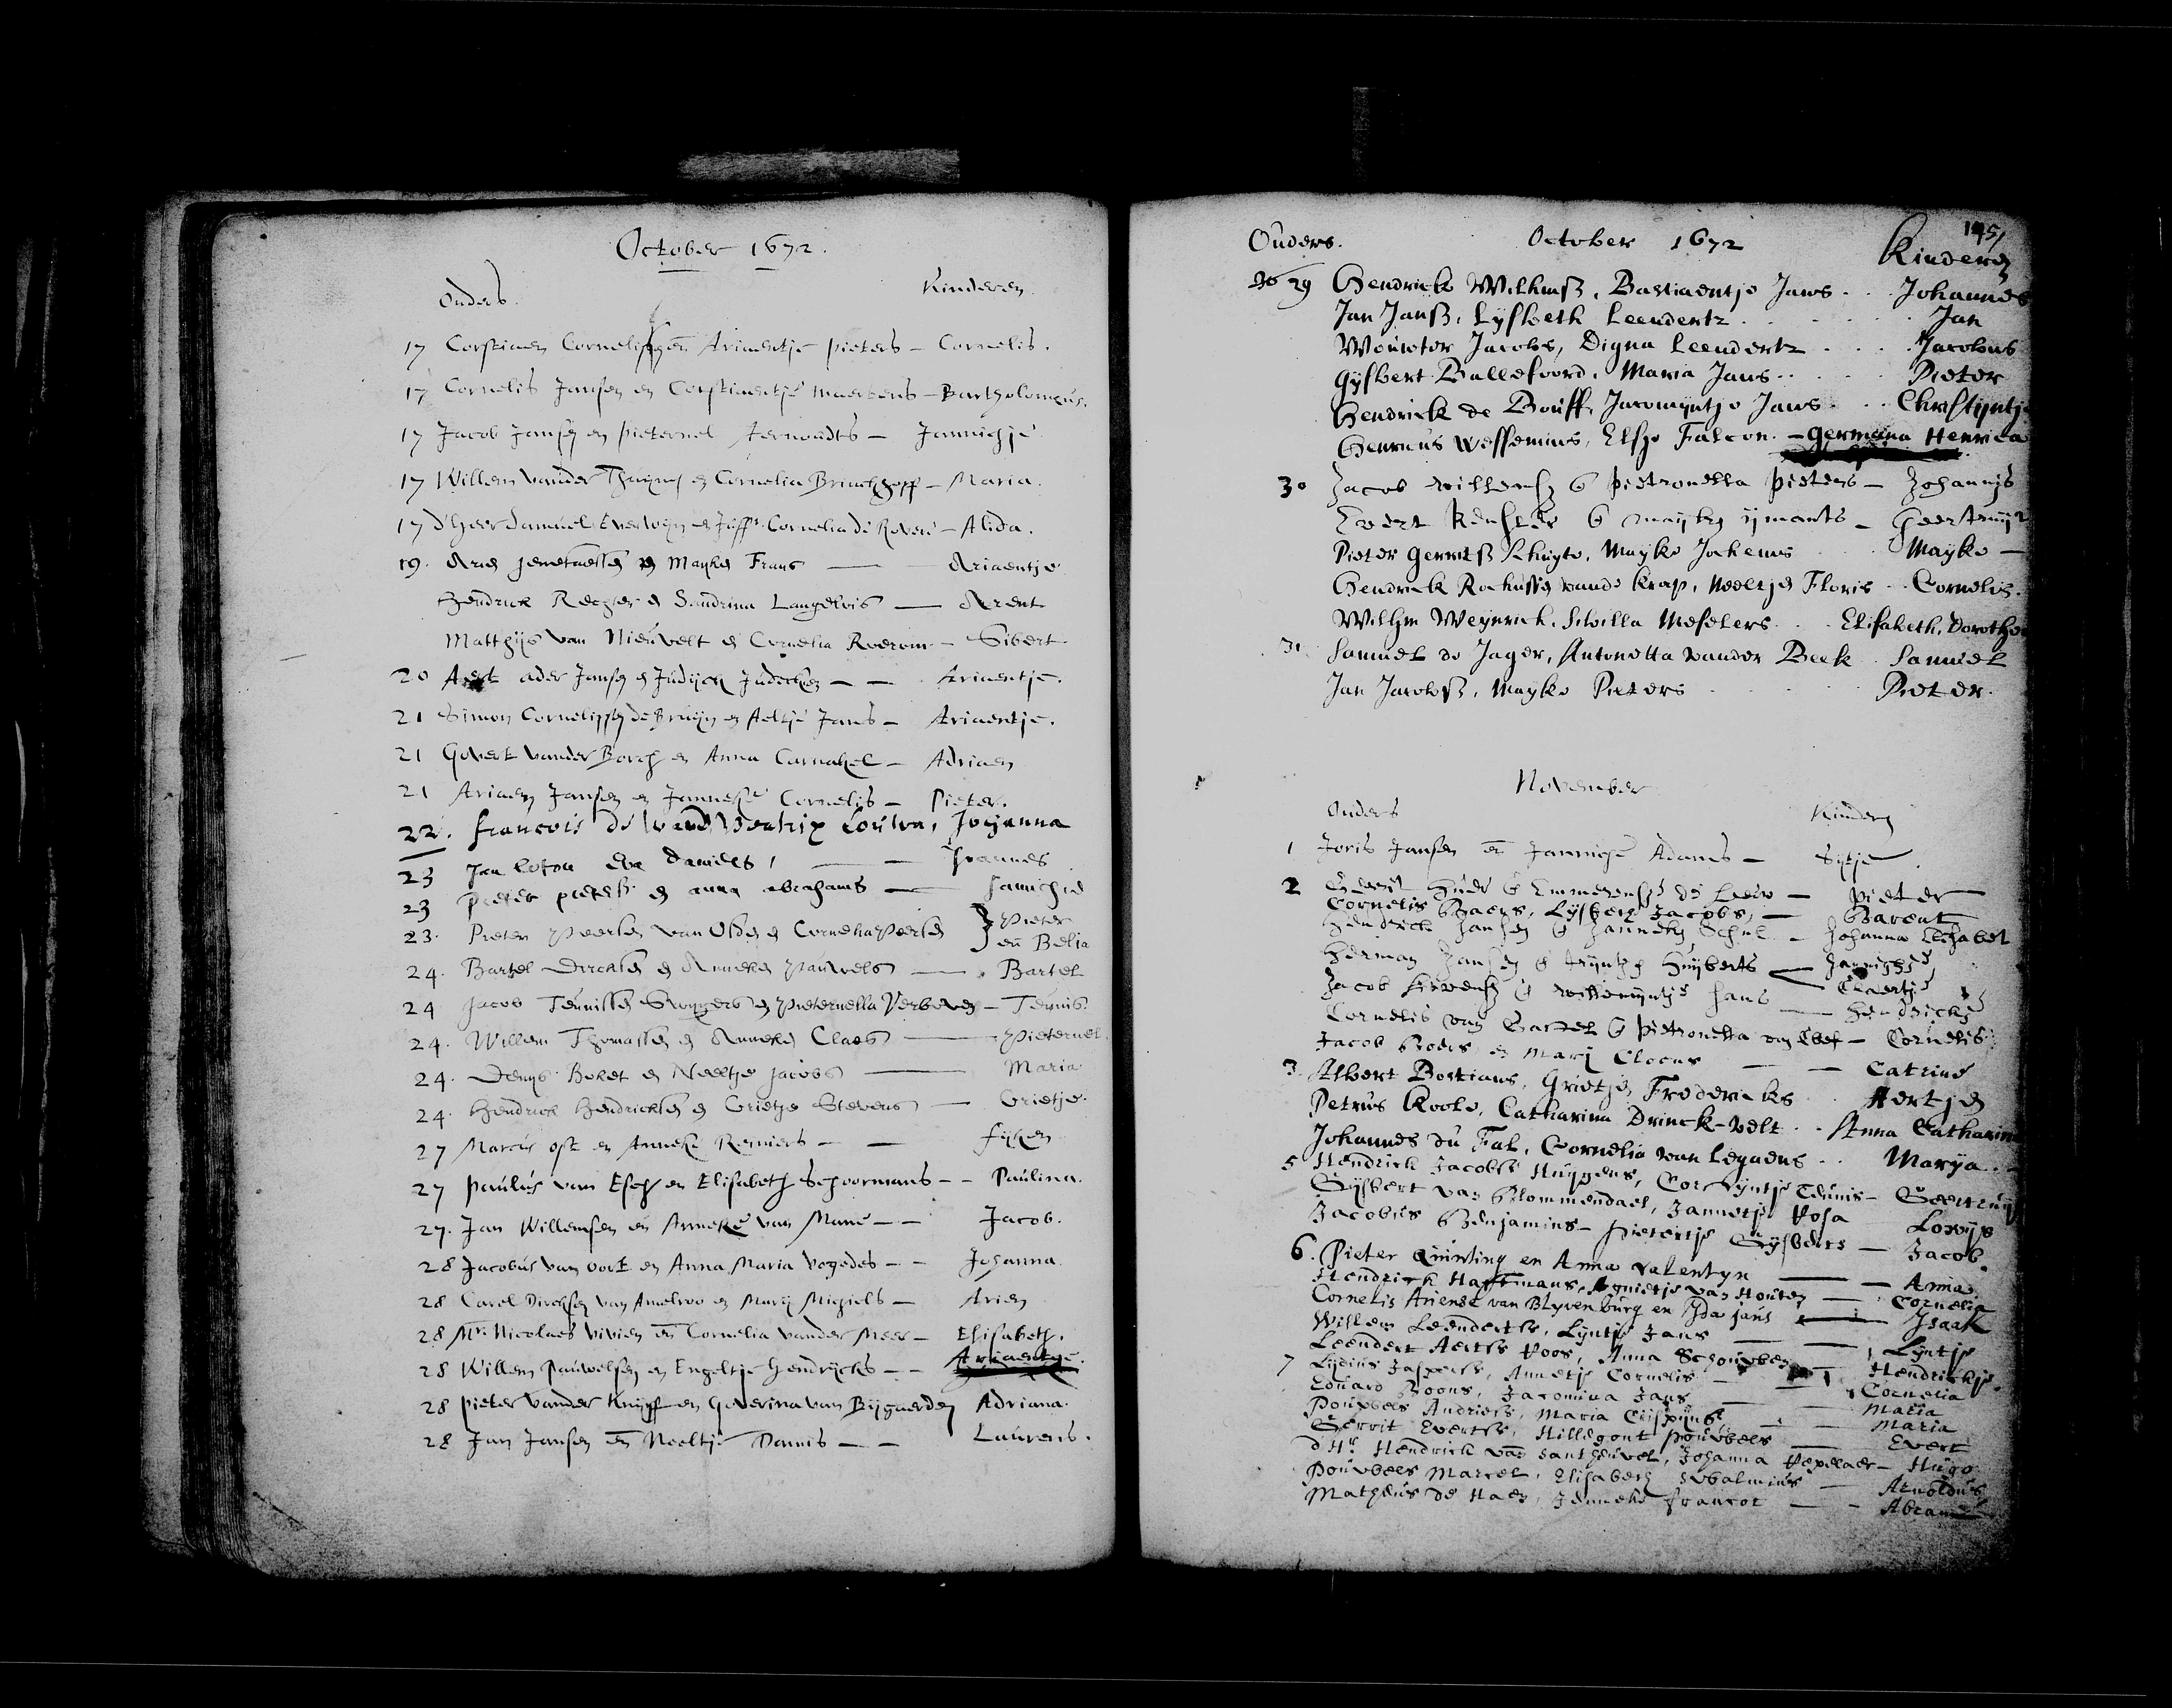 October 1672.
Ouders. Kinderen
17 Corstiaen Cornelissen en Ariaentje pieters - Cornelis.
17 Cornelis Jansen en Corstiaentje Maertens - Bartholomeus.
17 Jacob Jansen en pieternel Aernoudts - Jannichje
17 Willem vander en Cornelia Brinckhoff - Maria.
17 d'heer Samuel Everwyn en Juffr Cornelia de Rovere - Alida.
19. Aries en Mayke Frans - Ariaentje
Hendrick Rechter en Sandrina Langelvis - Arent
Matthijs van Nieuvelt en Cornelia Roerom - Sibert
20 ader Jansen en Judijck - Ariaentje.
21 Simon Cornelissen de Bruijn en Aeltje Jans - Ariaentje.
21 Govert vander Borch en Anna Carnakel - Adriaen
21 Ariaen Jansen en Janneke Cornelis - Pieter.
22. francois de Beatrix Johanna
23 Jan Eva daniels, Joannes
23 Pieter pieterss en anna abrahams - Janichie
23. Pieter Peersen van Olden en Cornelia Peersen } Pieter
en Belia
24. Bartel Dircksen en Anneken Pauwels - Bartel
24 Jacob Teunissen en Pieternella Verbeven - Teunis.
24. Willem Thomassen en Anneken Claes - Pieternel.
24. Denys Boket en Neeltje jacobs - Maria
24. Hendrick Hendricksen en Grietje Stevens - Grietje.
27 Marcus ost en Anneke Reyniers - fijken
27 paulus van Esch en Elisabeth Schoormans - - Paulina.
27. Jan Willemsen en Anneke van Mane - - Jacob.
28 Jacobus van oort en Anna Maria Vogedes - - Johanna
28 Carel Dircksen van Amelroo en Marij Michiels - Arien
28 Mr. Nicolaes Vivien en Cornelia vander Meer - Elisabeth.
28 Willem Pauwelsen en Engeltje Hendrijcks - - Ariaentje.
28 pieter vander Knijff en Goverina van Bijgaerden Adriana.
28 Jan Jansen en Neeltje Damis - - Laurens.
Ouders. October 1672 Kinderen
29 Hendrick Wilhmsz, Bastiaentje Jans . . Johannes
Jan Jansz, Lysbeth Leendertz . . . Jan
Wouter Jacobs, Digna Leendertz . . . Jacobus
Gysbert Ballefoord, Maria Jans . . . Pieter
Hendrick de Bouff, Jacomyntje Jans . . Christyntje
Henricus Wessemius, Elsje Falcon. - Germana Henrica
30 Jacob willemsz & pietronella pieters - Johannis
Evert & mayke ijmants - Geertruijt
Pieter Gerritsz Kluyte, Mayke Jochems Mayke -
Hendrick Rochussen vande Krap, Neeltje Floris . . Cornelis.
Wilhm Weynrick, Sibilla Meselers . . . Elisabeth, Dorothea
31 Samuel de Jager, Antonetta vander Beek . Samuel
Jan Jacobsz, Mayke Pieters . . . Pieter.
November
Ouders Kinders
1 Joris Jansen en Jannichje Adams - Sijtje
2 Geerit & de Leew - pieter
Cornelis Baers, Lysbeth Jacobs, - Barent
Hendrick Jansen & Janneken Schul - Johanna
Herman Jansen & Tryntje Huyberts - Jannichje
Jacob & willemijntje Jans - Claertje
Cornelis van & pietronella van - Hendrickje
Jacob Boers en Marij Cloens - Cornelis
3 Albert Bastiaans, Grietje Fredericks Catrine
Petrus Koole, Catharina Drinck-velt . . Anna Catharina
Johannes du Fal, Cornelia van Legaens . . Marya . .
5 Hendrick Jacobss Huygens, Corstyntje Teunis -
Gijsbert van Blommendael, Jannetje Vosa Lowijs
Jacobus Benjamins - pietertje Gijsberts - Jacob.
6. Pieter Quinting en Anna Valentyn - Anna.
Hendrick Hartmans, Agnietje van Houten - Cornelia
Cornelis Ariense van Blyvenburg en Ida jans - Isaak
Willem Leendertss, Lijntje Jans - Lijntje
Leendert Aertss Voos, Anna - Hendrickje.
7 Jaspers, Annetje Cornelis - Cornelia
Eduard Boons, Jacomina Jans - Maria
Pouwels Andriess, Maria - Maria
Gerrit Evertss, Hillegont pouwels - Evert
dHr Hendrick van Santheuvel, Johanna Repelaer - Hugo
Pouwels Marcel, Elisabeth - Arnoldus
Matheus de Haen, Janneke francot - Abram